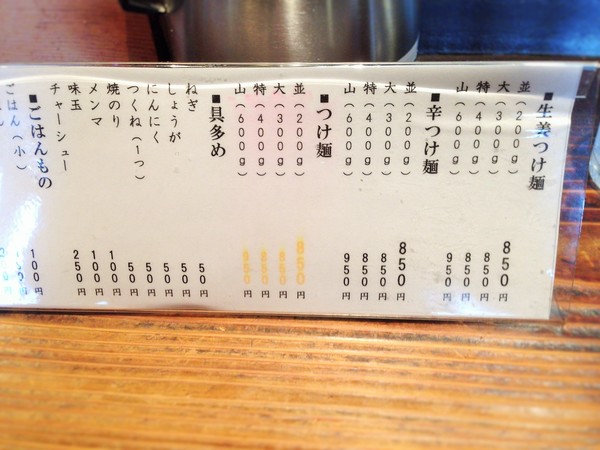 ■生姜つけ麺
並(200g) 850円
大(300g) 850円
特(400g) 850円
山(600g) 950円
■辛つけ麺
並(200g) 850円
大(300g) 850円
特(400g) 850円
山(600g) 950円
■つけ麺
並(200g) 850円
大(300g) 850円
特(400g) 850円
山(600g) 950円
■具多め
ねぎ 50円
しょうが 50円
にんにく 50円
つくね(1つ) 50円
焼のり 50円
メンマ 100円
味玉 100円
チャーシュー 250円
■ごはんもの
ごはん(小) 100円